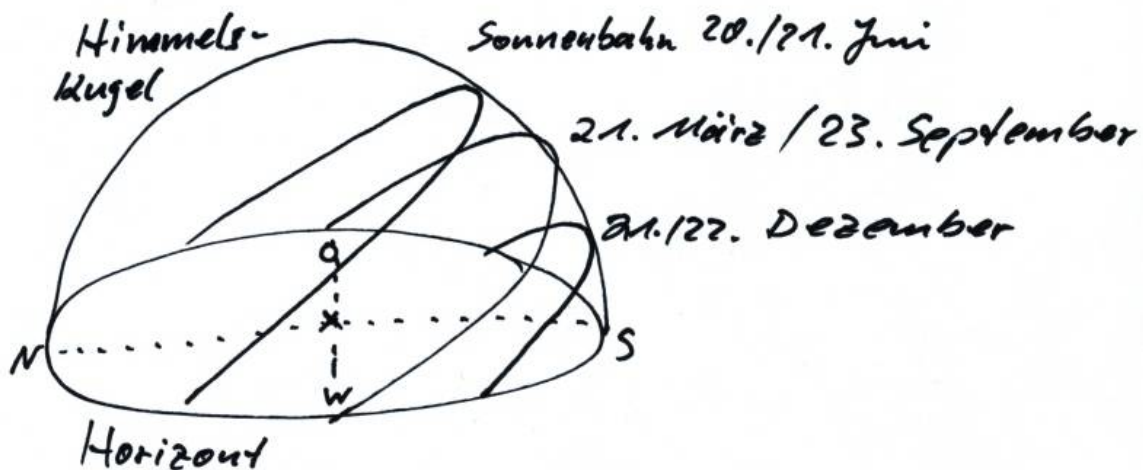 Himmels-
kugel
Sonnenbahn 20./21. Juni
21. März / 23. September
21./22. Dezember
O
N
S
W
Horizont